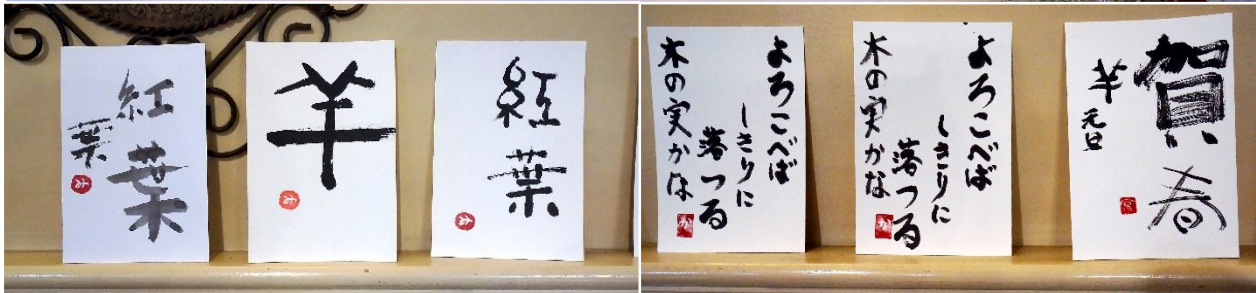 紅葉
葉
羊
紅葉
よろこべば
しきりに
落つる
木の実かな
か
よろこべば
しきりに
落つる
木の実かな
か
賀春
羊
元旦